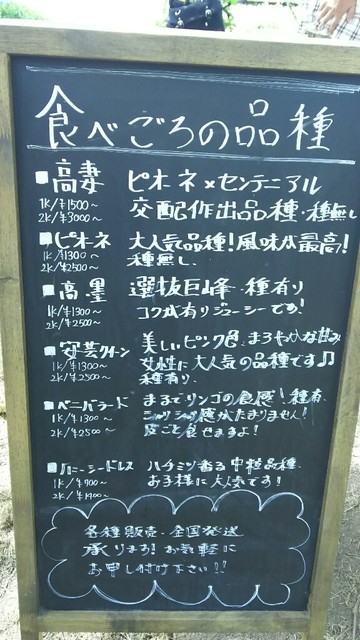 食べごろの品種
■高妻 ピオーネ×センテニアル
1K/¥1500～ 交配作出品種・種無し
2K/¥3000～
■ピオーネ 大人気品種!風味が最高!
1K/¥1300～ 種無し
2K/¥2500～
■高墨 選抜巨峰・種有り
1K/¥1300～ コク有りジューシーです!
2K/¥2500～
■安芸クイーン 美しいピンク色、まろやかな甘み
1K/¥1300～ 女性に大人気の品種です♫
2K/¥2500～ 種有り、
■ベニバラード まるでリンゴの食感!種有、
1K/¥1300～ シャリシャリ感がたまりません!
2K/¥2500～ 皮ごと食せますよ!
■ハニーシードレス ハチミツ香る中粒品種
1K/¥900～ お子様に大人気です!
2K/¥1900～
各種販売・全国発送
承ります! お気軽に
お申し付け下さい!!